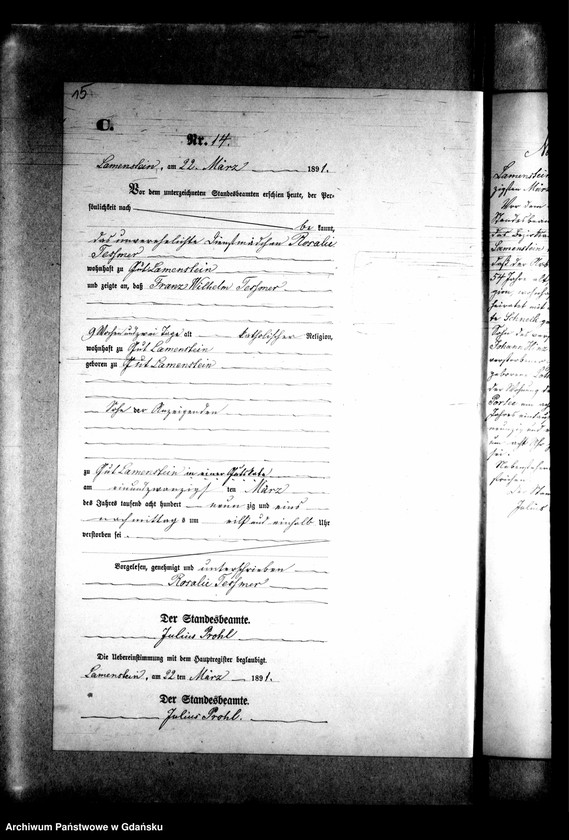 15
C.
Nr. 14.
Lamenstein, am 22. März 1891.
Vor dem unterzeichneten Standesbeamten erschien heute, der Per-
sönlichkeit nach
be kannt,
das unverehelichte Dienstmädchen Rosalie
Teßmer
wohnhaft zu Gut Lamenstein
und zeigte an, daß Franz Wilhelm Teßmer
9 Wochen und zwei Tage alt katholischer Religion,
wohnhaft zu Gut Lamenstein
geboren zu Gut Lamenstein
Sohn der Anzeigenden
zu Gut Lamenstein in einer Gutskate
am einundzwanzigsten März
des Jahres tausend acht hundert neun zig und eins
nachmittags um eilf und einhalb Uhr
verstorben sei.
Vorgelesen, genehmigt und unterschrieben
Rosalie Teßmer
Der Standesbeamte.
Julius Prohl
Die Uebereinstimmung mit dem Hauptregister beglaubigt.
Lamenstein, am 22 ten März 1891.
Der Standesbeamte.
Julius Prohl.
Lamenstein
zigsten März
Vor dem
Standesbea
des Bezirkes
Lamenstein
daß der
54 Jahre alt
gion,
heiratet mit
te Schneck ge
Sohn des ver
Johann Hinz
verstorbenen
geborene
der Wohnung de
am
Jahres eintaus
neunzig und
um acht Uhr
sei.
Julius
Archiwum Państwowe w Gdańsku